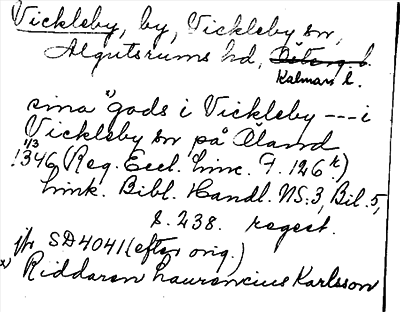 Vickleby, by, Vickleby sn,
Algutsrums hd, Österg. l.
Kalmar l.
sina "gods i Vickleby --- i
Vickleby sn på Åland
1/3
1346 (Reg. Eccl. Linc. F. 126 r.)
Link. Bibl. Handl. NS.3, Bil.5,
s. 238. regest.
jfr SD4041 (efter orig.)
x) Riddaren Laurencius Karlsson